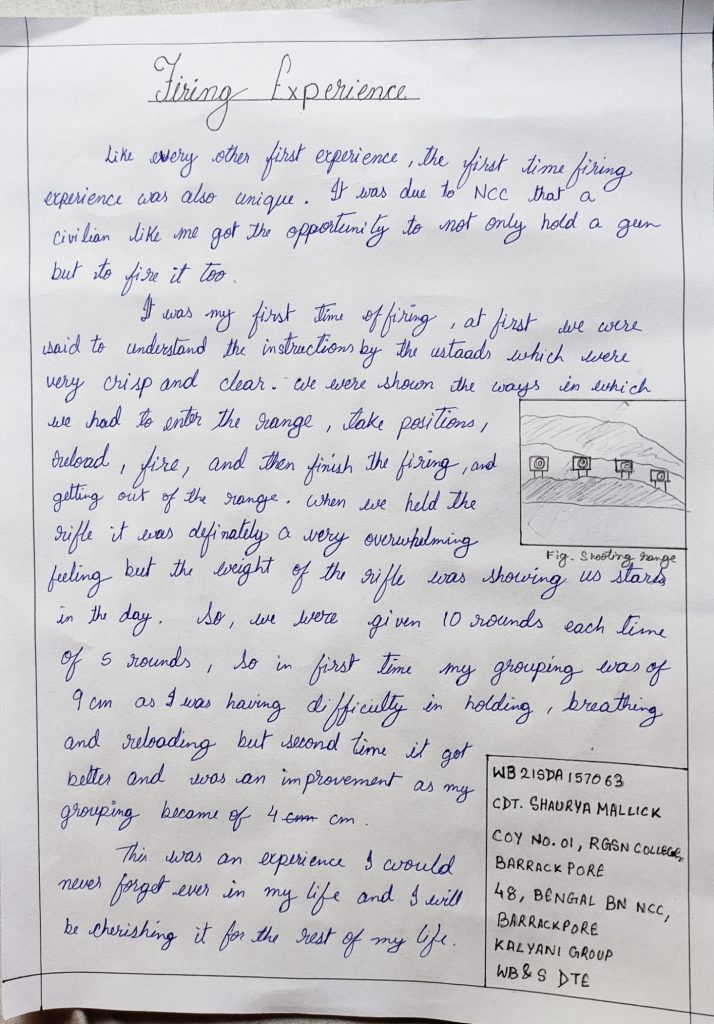 Firing Experience
Like every other first experience, the first time firing
experience was also unique. It was due to NCC that a
civilian like me got the opportunity to not only hold a gun
but to fire it too.
It was my first time of firing, at first we were
said to understand the instructions by the ustaads which were
very crisp and clear. We were shown the ways in which
we had to enter the range, take positions,
reload, fire, and then finish the firing, and
getting out of the range. When we held the
rifle it was definately a very overwhelming
Fig. Shooting range
feeling but the weight of the rifle was showing us stars
in the day. So, we were given 10 rounds each time
of 5 rounds, so in first time my grouping was of
9 cm as I was having difficulty in holding, breathing
and reloading but second time it got
better and was an improvement as my
grouping became of 4 cm cm.
This was an experience I would
never forget ever in my life and I will
be cherishing it for the rest of my life.
WB21SDA157063
CDT. SHAURYA MALLICK
COY NO. 01, RGSN COLLEGE,
BARRACKPORE
48, BENGAL BN NCC,
BARRACKPORE
KALYANI GROUP
WB & S DTE